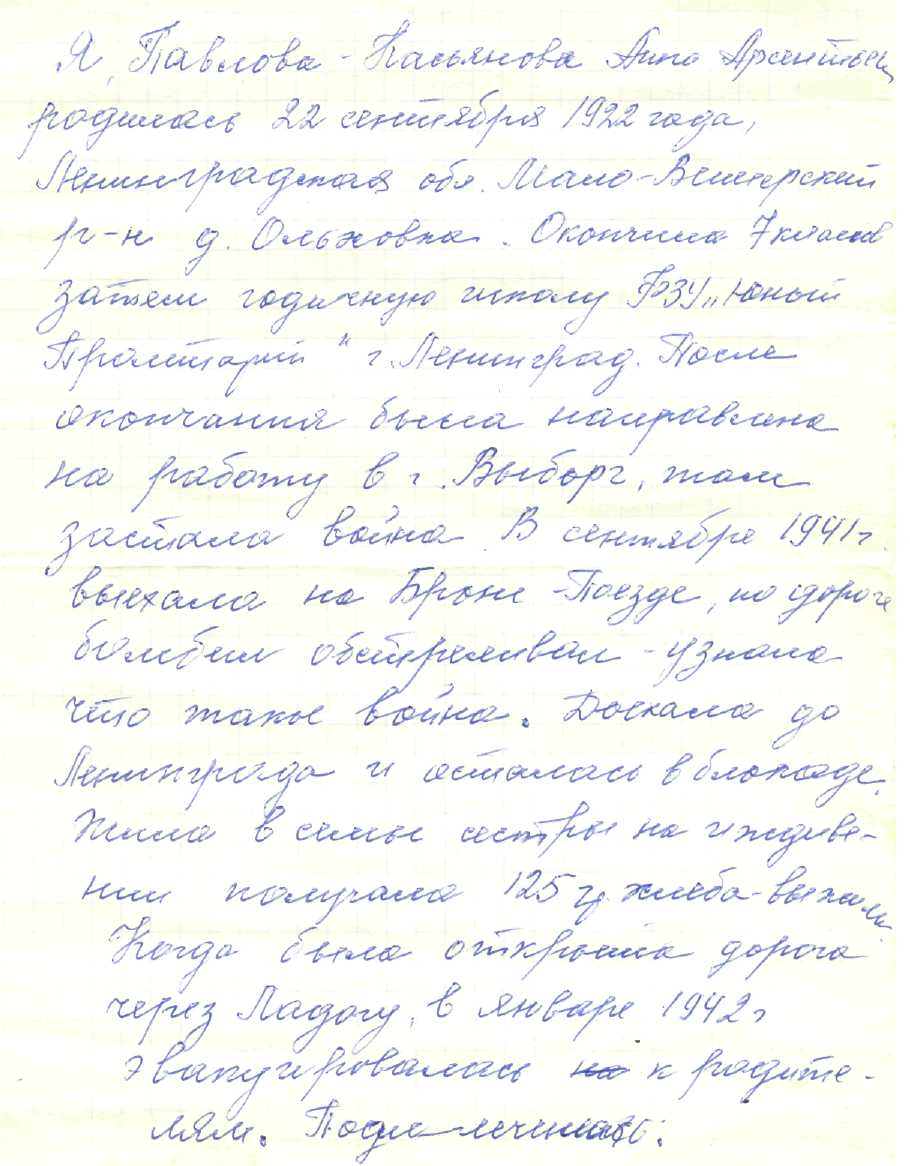 Я, Павлова-Касьянова Анна Арсентьевн
родилась 22 сентября 1922 года,
Ленинградская обл. Мало-Вишерский
р-н д. Ольховка. Окончила 7 классов
затем годичную школу ФЗУ „Юный
Пролетарий" г. Ленинград. После
окончания была направлена
на работу в г. Выборг, там
застала война. В сентябре 1941 г.
выехала на Броне-Поезде, по дороге
бомбили обстреливали - узнала
что такое война. Доехала до
Ленинграда и осталась в блокаде.
Жила в семье сестры на иждиве-
нии получала 125 гр. хлеба-выжили.
Когда была открыта дорога
через Ладогу, в январе 1942 г
эвакуировалась на к родите-
лям. Подлечилась.